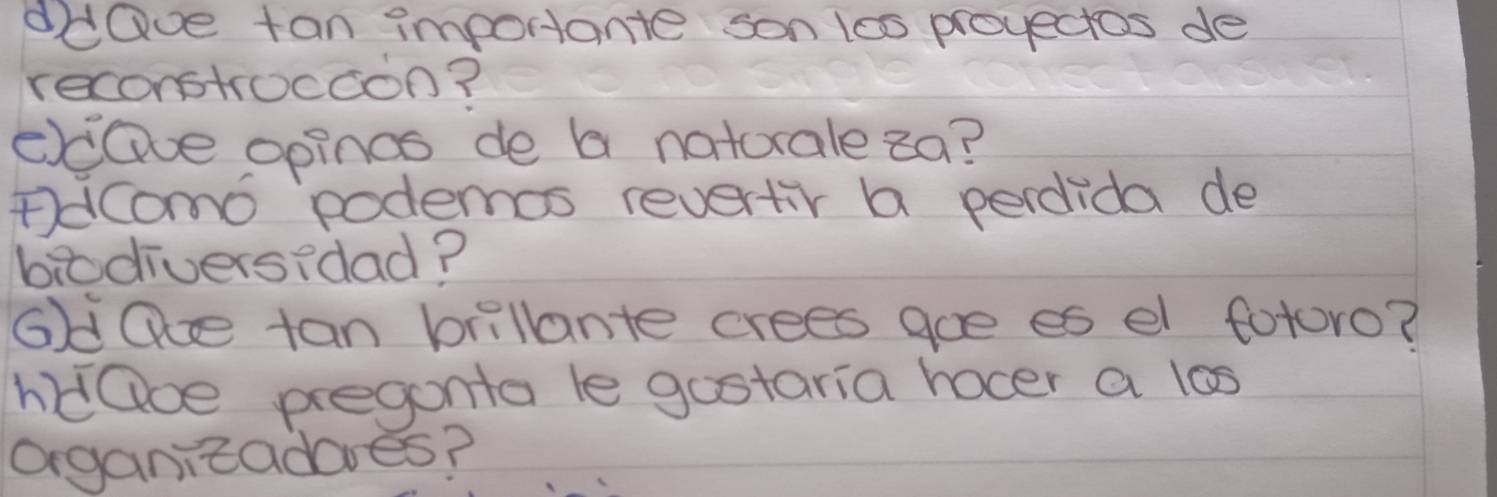 d)¿Que tan importante son los proyectos de
reconstruccón?
e)¿Que opinas de la naturaleza?
F)¿Comó podemos revertir la perdida de
biodiversidad?
G)¿Que tan brillante crees que es el futuro?
h)¿Que pregunta le gustaría hacer a los
organizadores?